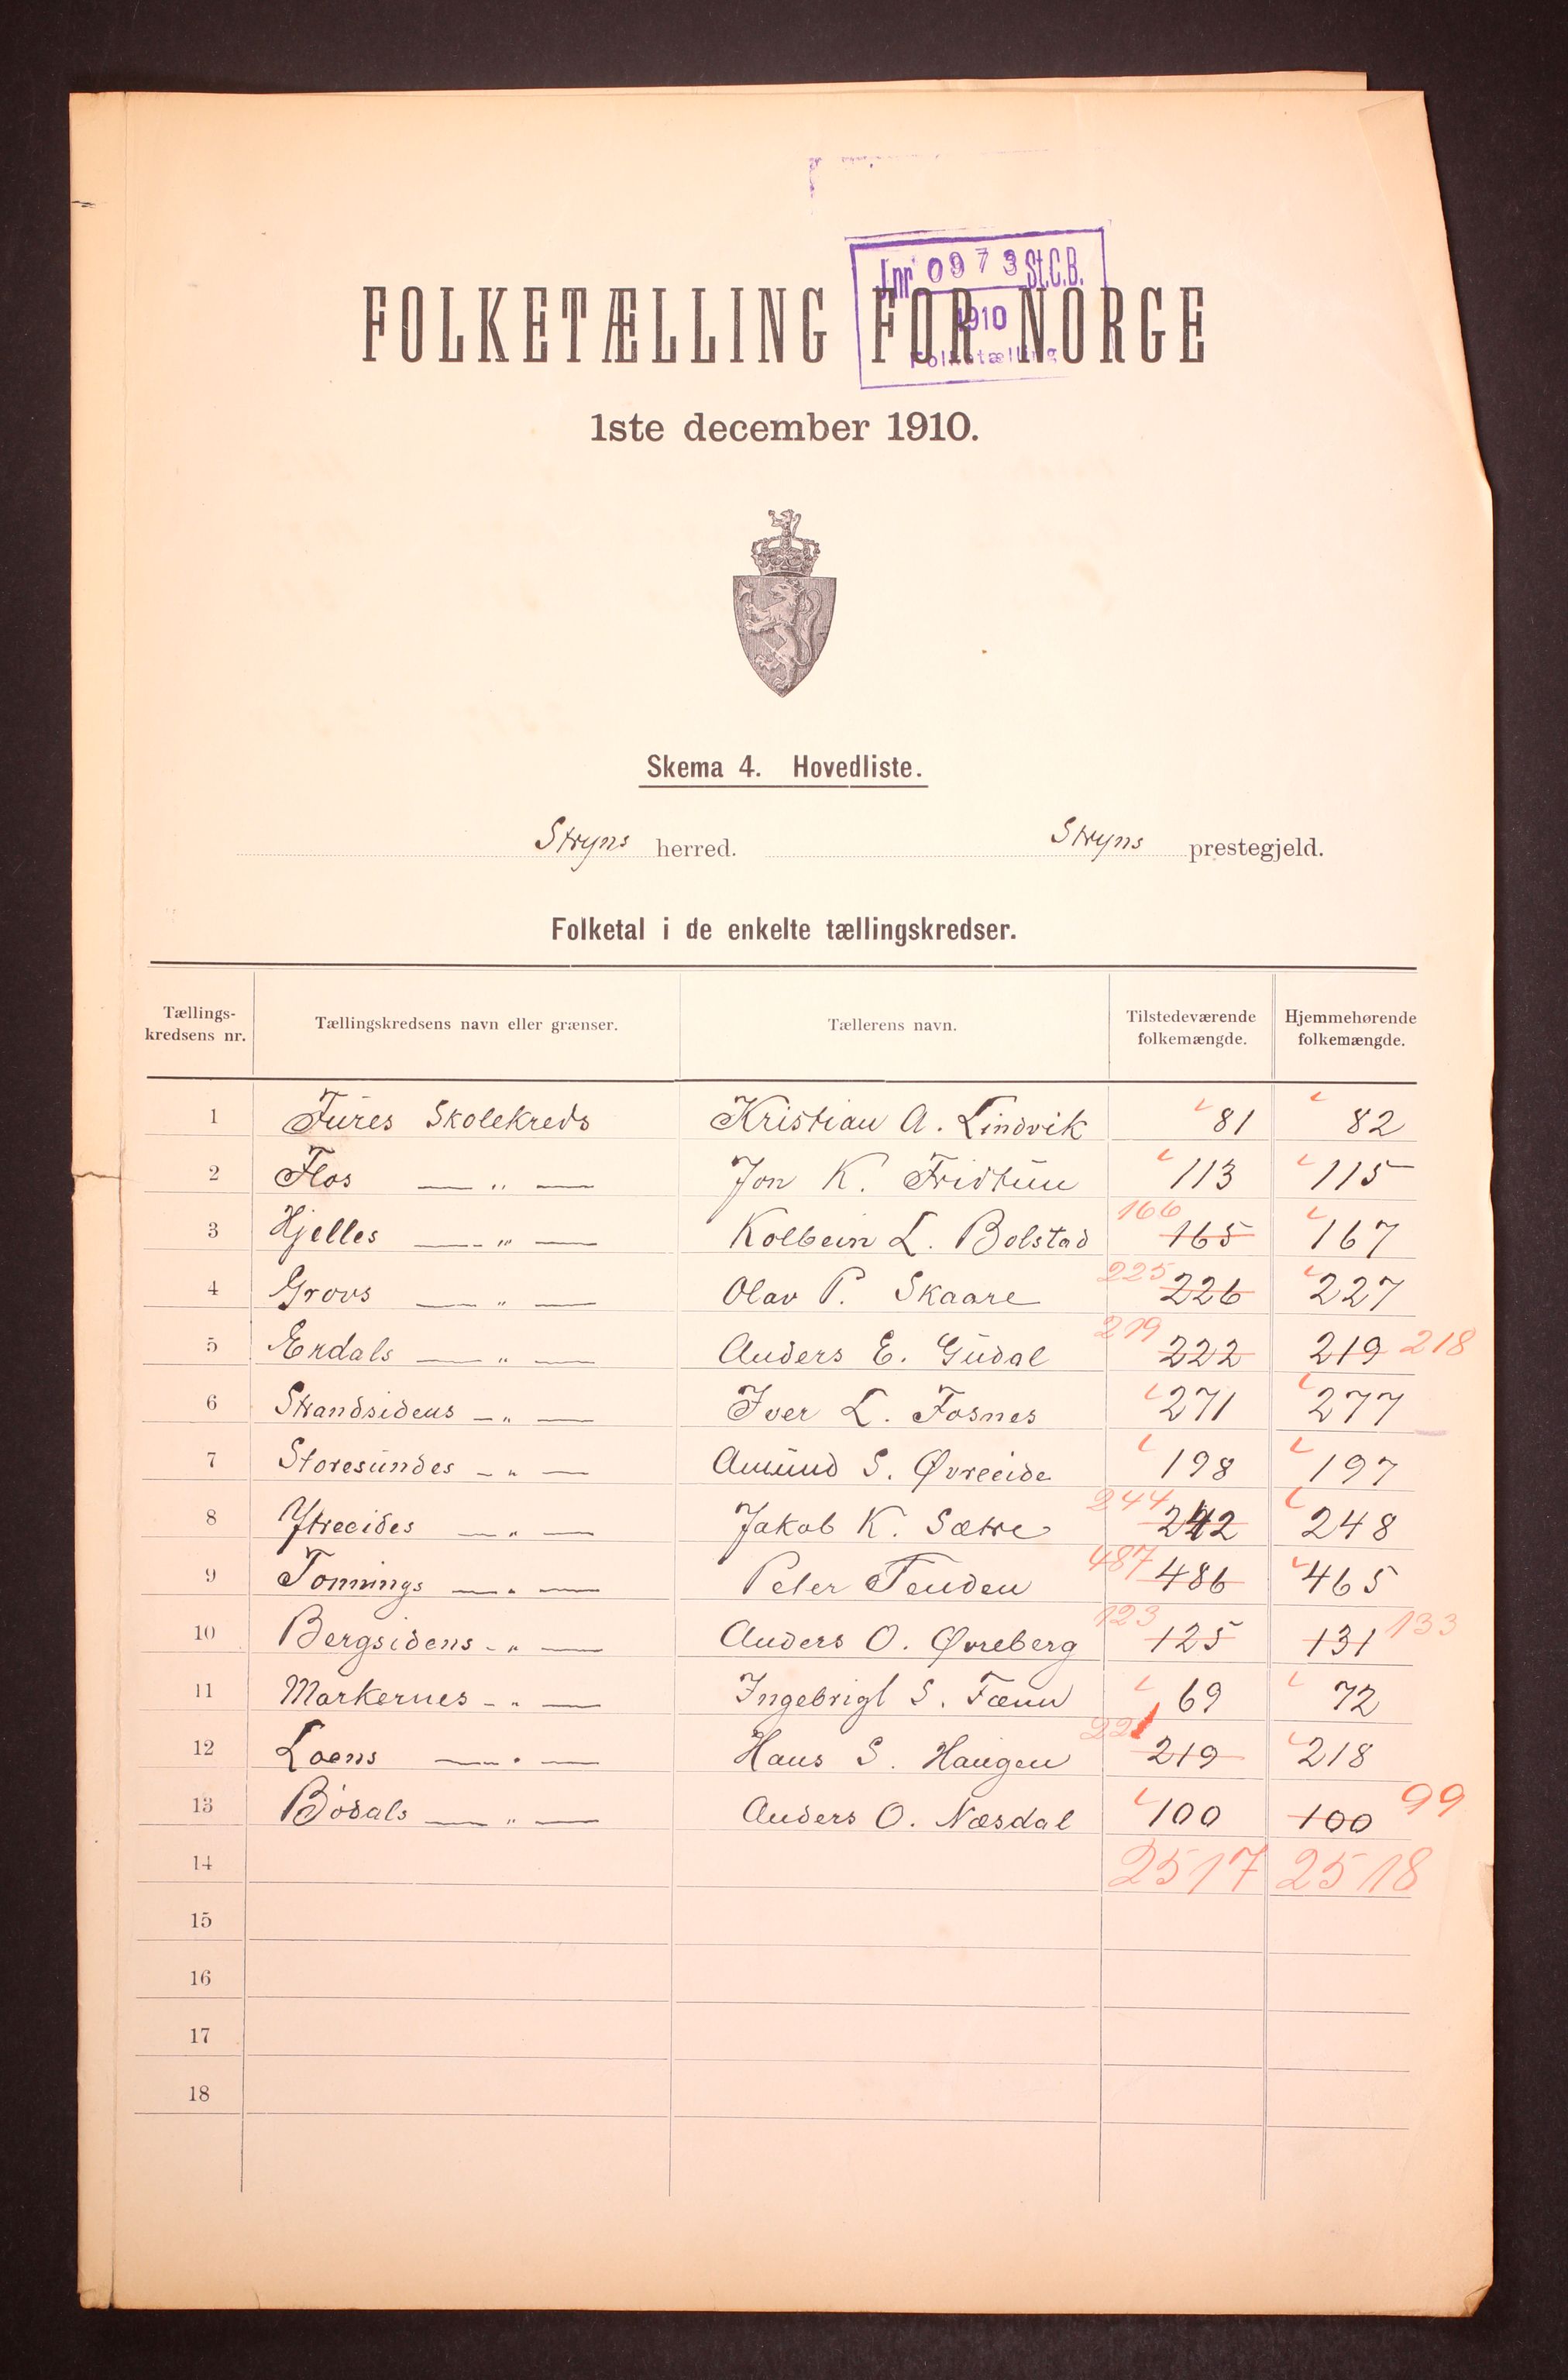 Jnr 0973 St.C.B.
1910
Folketælling
FOLKETÆLLING FOR NORGE
1ste december 1910.
Skema 4. Hovedliste.
Stryns herred. Stryns prestegjeld.
Folketal i de enkelte tællingskredser.
Tællings-kredsens nr. Tællingskredsens navn eller grænser. Tællerens navn. Tilstedeværende folkemængde. Hjemmehørende folkemængde.
1 Fures Skolekreds Kristian A. Lindvik 81 82
2 Flos — „ — Jon K. Fridtun 113 115
3 Hjelles — „ — Kolbein L. Bolstad 166 165 167
4 Grovs — „ — Olav P. Skaare 225 226 227
5 Erdals — „ — Anders E. Gudal 219 222 219 218
6 Strandsidens — „ — Iver L. Fosnes 271 277
7 Storesundes — „ — Amund S. Øvreeide 198 197
8 Ytreeides — „ — Jakob K. Sætre 244 242 248
9 Tonnings — „ — Peter Tenden 487 486 465
10 Bergsidens — „ — Anders O. Øvreberg 123 125 131 133
11 Markernes — „ — Ingebrigt S. Fænn 69 72
12 Loens — „ — Hans S. Haugen 221 219 218
13 Bødals — „ — Anders O. Næsdal 100 100 99
14 2517 2518
15
16
17
18